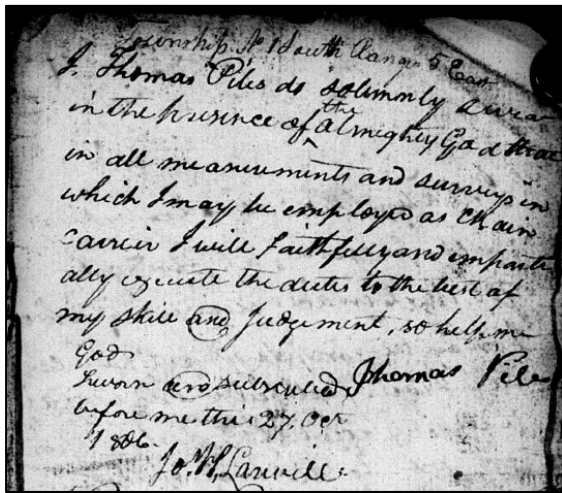 Township No 1 South Range 5 East
I. Thomas Piles do solemnly swear
in the presence of the almighty God that
in all measurements and surveys in
which I may be employed as chain
carrier I will faithfully and imparti
ally execute the duties to the best of
my skill and Judgement, so help me
God
Sworn and subscribed Thomas Piles
before me this 27 Oct
1806.